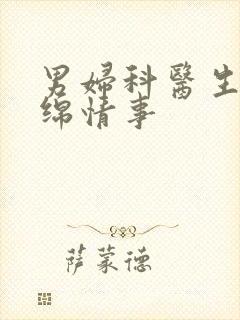 男婦科醫生
綿情事
萨蒙德